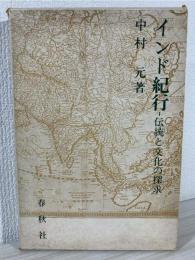 インド紀行-伝統と文化の探求
中村元著
春秋社